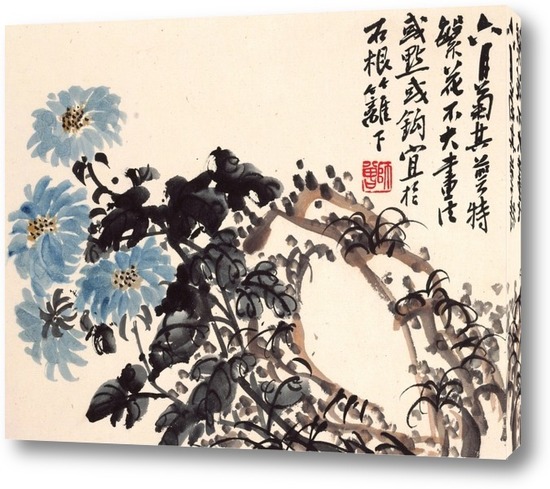 六月菊其蕚特
繁花不大畫法
或點或鈎宜於
石根籬下
師曾